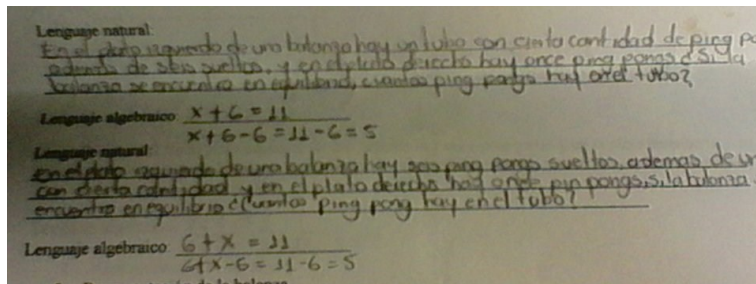 Lenguaje natural:
En el plato izquierdo de una balanza hay un tubo con cierta cantidad de ping po
además de seis sueltos, y en el plato derecho hay once ping pongs ¿Si la
balanza se encuentra en equilibrio, cuantos ping pongs hay en el tubo?
Lenguaje algebraico: x + 6 = 11
x + 6 - 6 = 11 - 6 = 5
Lenguaje natural:
en el plato izquierdo de una balanza hay seis ping pongs sueltos, ademas de un
con cierta cantidad y en el plato derecho hay once pin pongs, si la balanza
encuentra en equilibrio ¿Cuantos ping pong hay en el tubo?
Lenguaje algebraico: 6 + x = 11
6 + x - 6 = 11 - 6 = 5